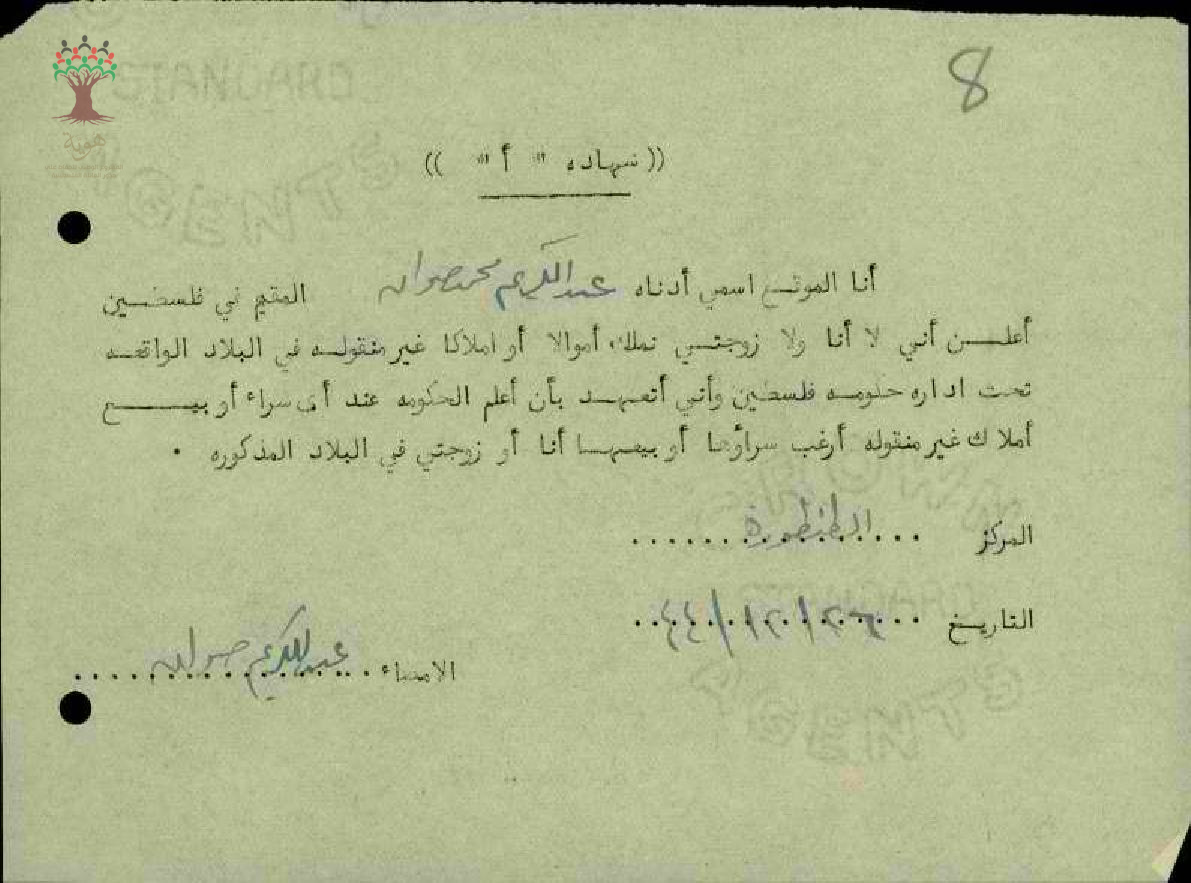 8
((شهاده " أ " ))
أنا الموقع اسمي أدناه عبد الكريم محمد صوان المقيم في فلسطين
أعلن أني لا أنا ولا زوجتي نملك أموالا أو املاكا غير منقوله في البلاد الواقعه
تحت اداره حكومه فلسطين وأني أتعهد بأن أعلم الحكومه عند أى شراء أو بيع
أملاك غير منقوله أرغب شراؤها أو بيعها أنا أو زوجتي في البلاد المذكوره .
المركز الطنطورة
التاريخ ٢٦/١٢/٤٤
الامضاء عبد الكريم صوان
هوية
STANDARD
AGENTS
CROWN
STANDARD
AGENTS